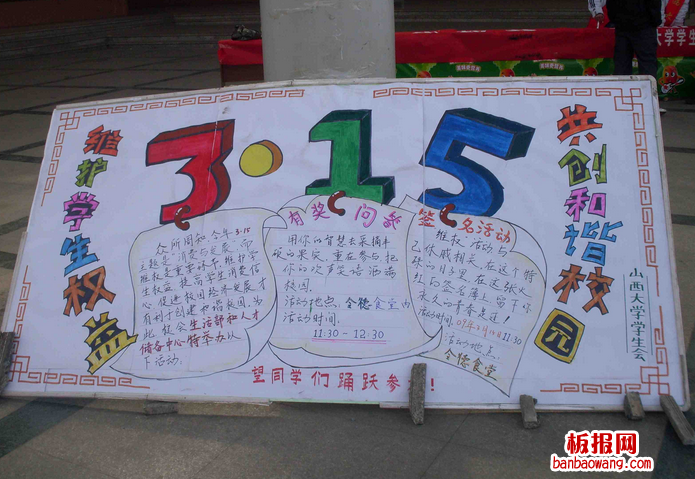 3·15
维护学生权益
共创和谐校园
山西大学学生会
众所周知,今年3.15
主题是消费与发展,而
维权是重要水平,维护学
生权益,提高学生消费信
心,促进校园经济发展,
有利于创建和谐校园.为
此,校会生活部和人才
储备中心特举办以
下活动.
有奖问答
用你的智慧去采摘丰
硕的果实,重在参与,把
你的欢声笑语洒满
校园.
活动地点:令德食堂内
活动时间:
11:30-12:30
签名活动
维权活动与
己休戚相关,在这个特
殊的日子里,在这张火
红的签名簿上,留下你
永久的青春足迹!
活动时间:09年3月15日11:30
活动地点:
令德食堂
望同学们踊跃参!
板报网
banbaowang.com